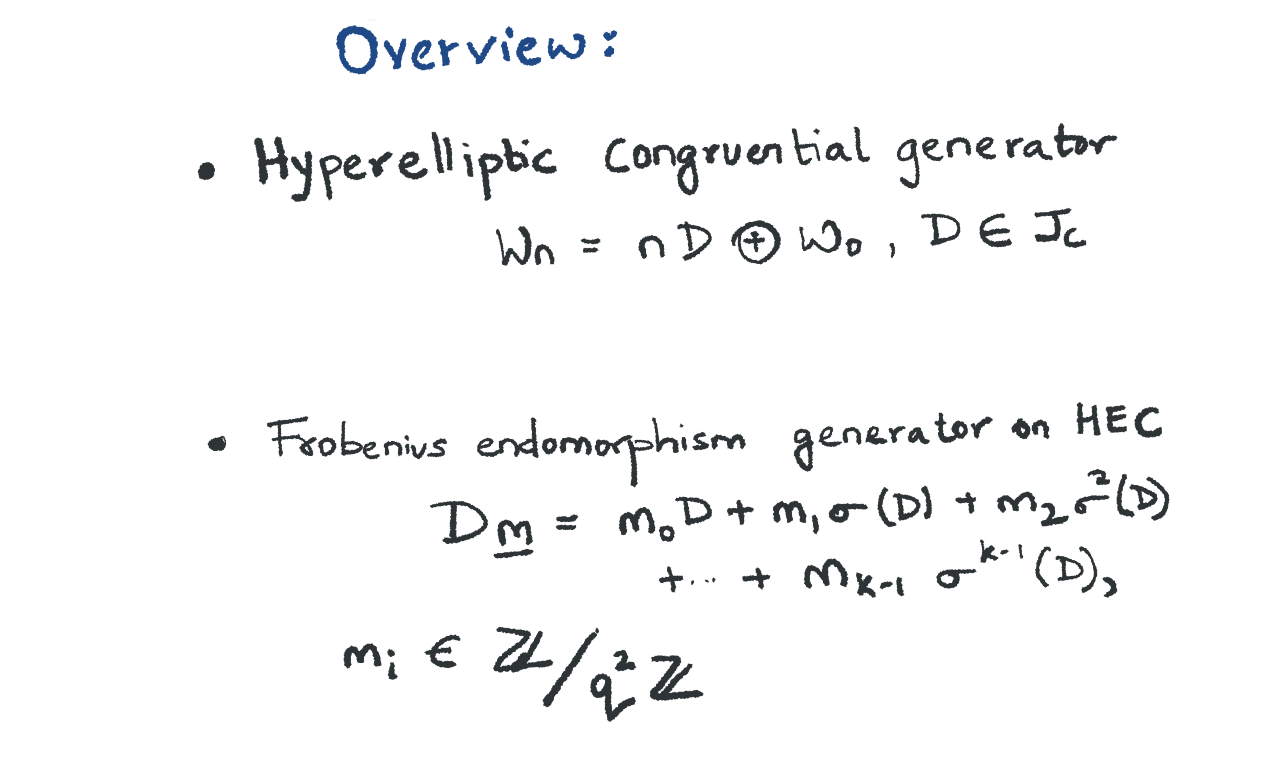 Overview:
• Hyperelliptic Congruential generator
Wₙ = nD ⊕ W₀, D ∈ J_C
• Frobenius endomorphism generator on HEC
D_m̲ = m₀D + m₁σ(D) + m₂σ²(D)
+... + m_{k-1} σ^{k-1}(D),
mᵢ ∈ ℤ/q²ℤ